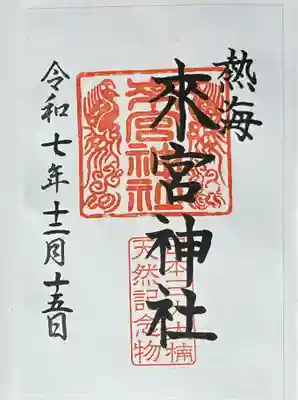 熱海
來宮神社
令和七年十二月十五日
來宮神社
日本三大大楠
天然記念物